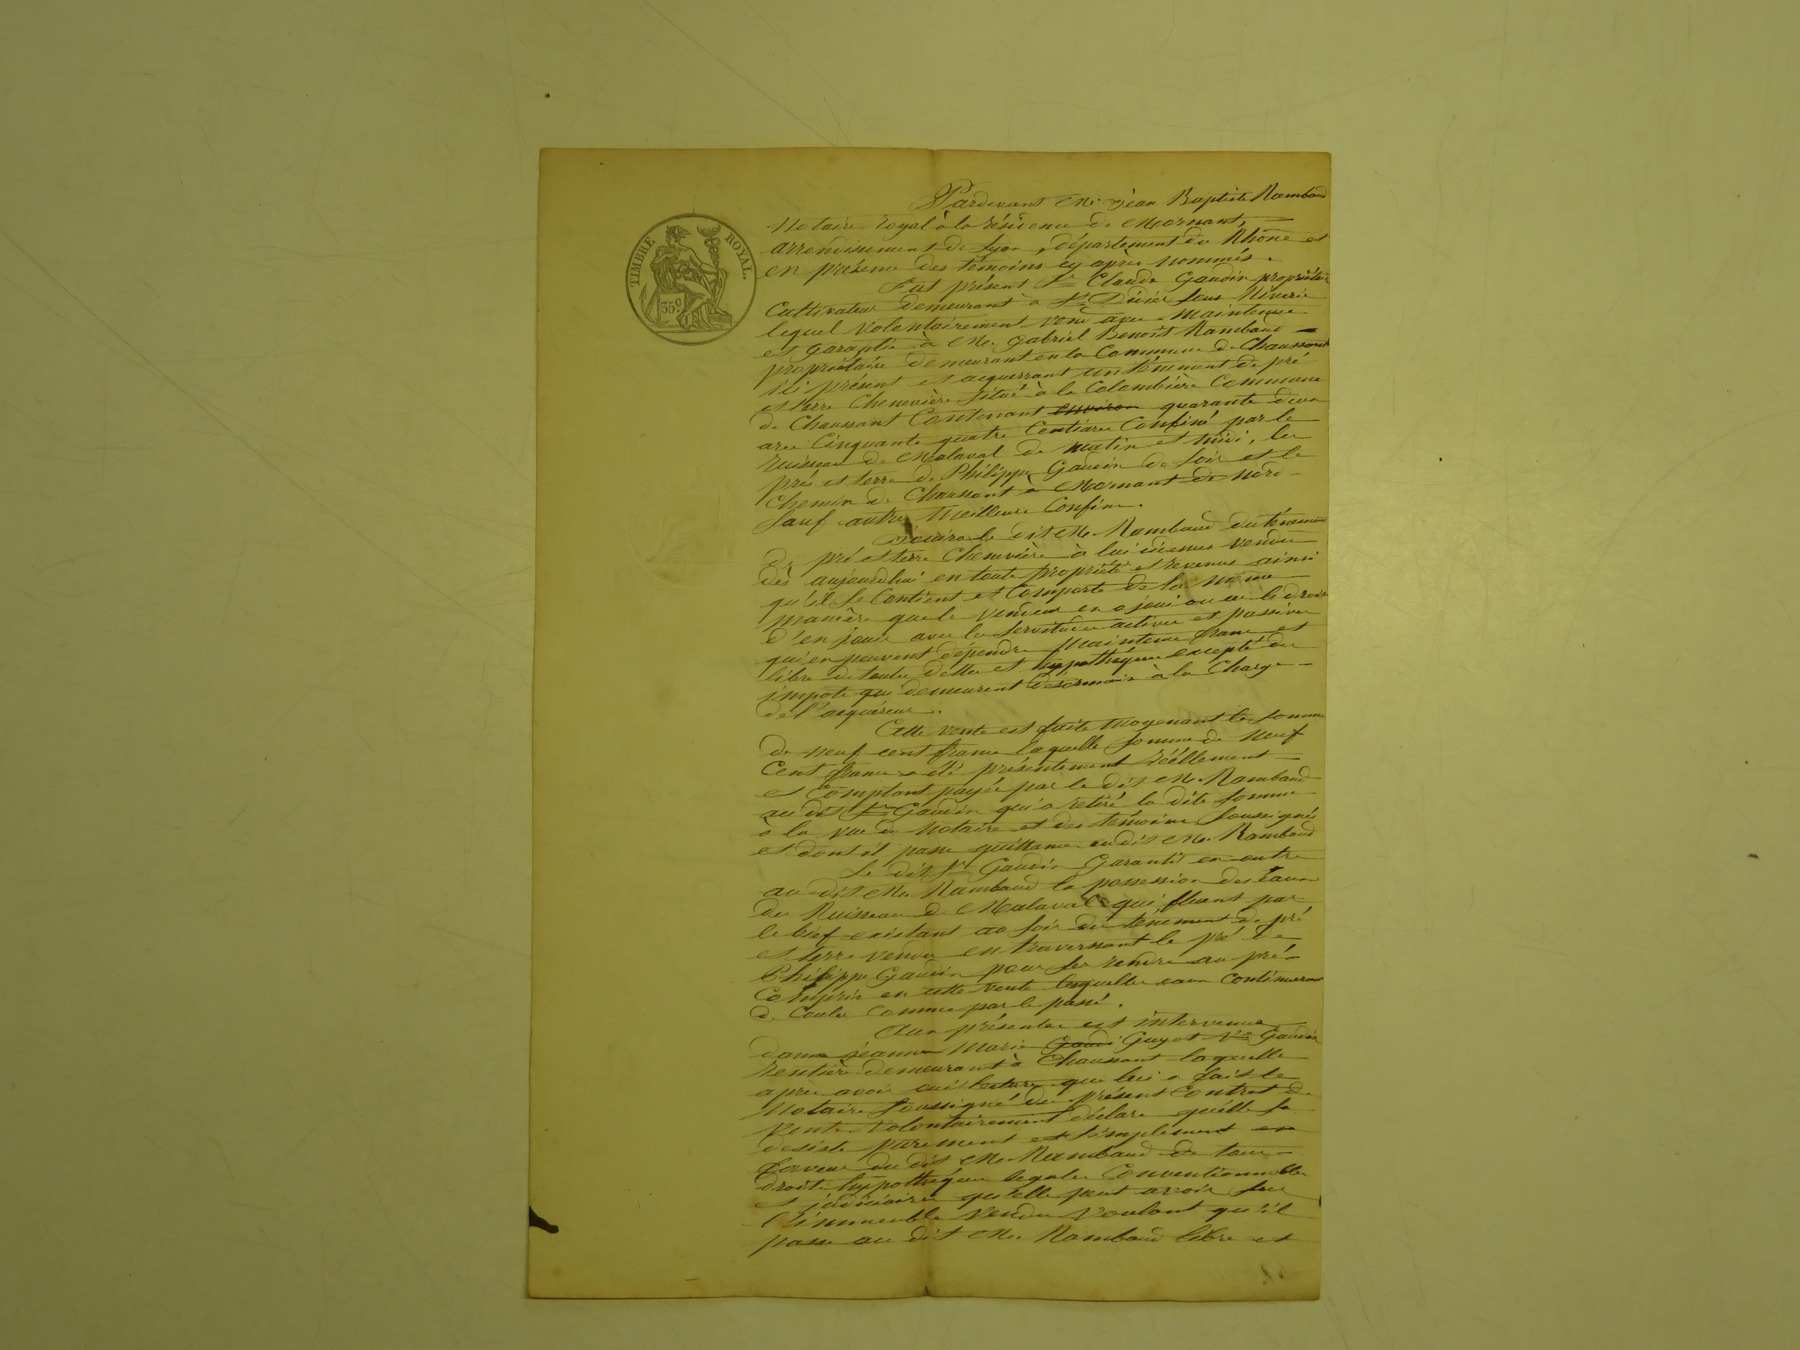 TIMBRE ROYAL.
35 c.
Pardevant Me. Jean Baptiste Rambaud
Notaire royal à la résidence de Mornant,
arrondissement de Lyon, département du Rhône et
en présence des témoins cy après nommés.
Fut présent Sr Claude Gaudin propriétaire
Cultivateur demeurant à St Didier sous Riverie
lequel volontairement vend avec maintenue
et garantie à Me. Gabriel Benoit Rambaud
propriétaire demeurant en la Commune de Chaussant
ici présent et acquerrant un ténement de pré
et terre Chenevière situé à la Colombière Commune
de Chaussant Contenant environ quarante deux
ares Cinquante quatre Centiares Confiné par le
ruisseau de Malaval de matin et midi, les
prés et terre de Philippe Gaudin de soir et le
Chemin de Chaussant à Mornant de nord
sauf autres meilleurs Confins.
Jouira le dit Me. Rambaud du ténement
de pré et terre Chenevière à lui cidessus vendu
dès aujourdhui en toute propriété et revenus ainsi
qu'il se Contient et Comporte de la même
manière que le vendeur en a joui ou eu le droit
d'en jouir avec les servitudes actives et passives
qui en peuvent dépendre maintenu franc et
libre de toutes dettes et hypothéques excepté des
impots qui demeurent désormais à la Charge
de l'acquéreur.
Cette vente est faite moyenant la somme
de neuf cent francs laquelle somme de neuf
Cent francs a été présentement réellement
et Comptant payée par le dit Me. Rambaud
au dit Sr Gaudin qui a retiré la dite somme
à la vue du Notaire et des témoins soussignés
et dont il passe quittance au dit Me. Rambaud
Le dit Sr Gaudin Garantit en outre
au dit Me. Rambaud la possession des Eaux
du Ruisseau de Malaval qui fluent par
le bief existant au soir du ténement de pré
et terre vendu en traversant le pré de
Philippe Gaudin pour se rendre au pré
Compris en cette vente lesquelles eaux Continueront
de Couler Comme par le passé.
Aux présentes est intervenue
dame Jeanne Marie Gaudi Guyot Ve Gaudin
rentière demeurant à Chaussant laquelle
après avoir oui lecture que lui a fait le
Notaire soussigné du présent Contrat de
vente volontairement déclare qu'elle se
desiste purement et simplement en
faveur du dit Me. Rambaud de tous
droits hypothéques legales Conventionnelles
et judiciaires qu'elle peut avoir sur
l'immeuble vendu voulant qu'il
passe au dit Me. Rambaud libre et